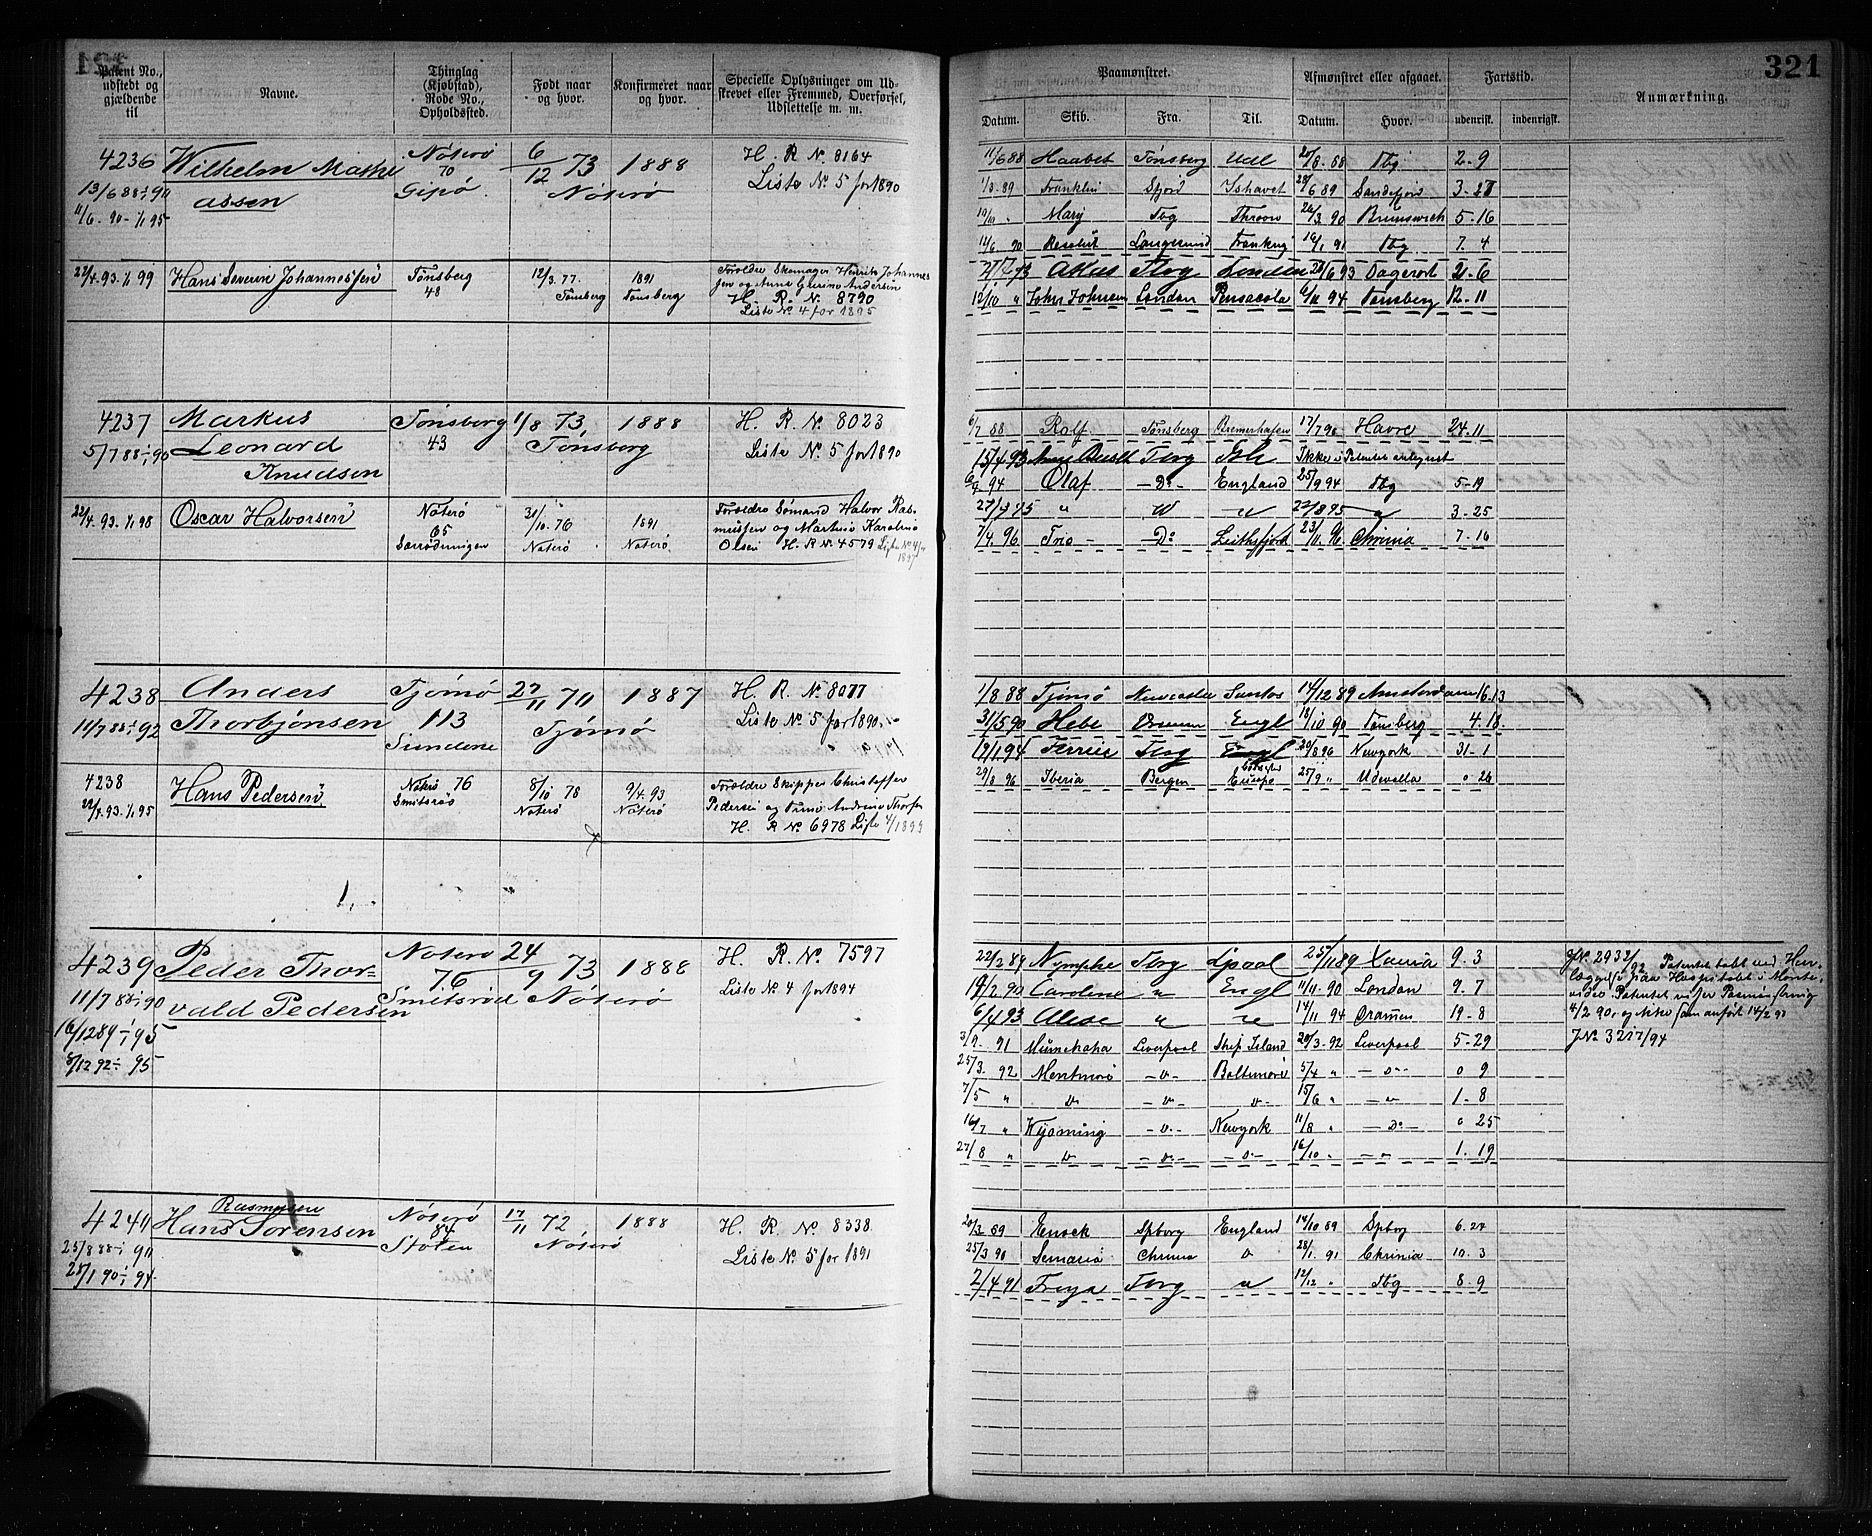 321
Patent No., udstedt og gjældende til
Navne.
Thinglag (Kjøbstad), Rode No., Opholdssted.
Født naar og hvor.
Konfirmeret naar og hvor.
Specielle Oplysninger om Udskrevet eller Fremmed, Overførsel, Udslettelse m. m.
Paamønstret.
Afmønstret eller afgaaet.
Fartstid.
Anmærkning.
Datum. Skib. Fra. Til. Datum. Hvor. udenrigsk. indenrigsk.
4236 Wilhelm Mathi Nøterø 6/12 73 1888 H. R. No. 8164
13/6 88 ÷ 1/1 90 assen 70 Gipø Nøterø Liste No. 5 for 1890
11/6. 90 - 1/1 95
11/6 88 Haabet Tønsberg Udl 20/8 88 Tbg 2 - 9
1/3 89 Franklin Fjord Ishavet 28/6 89 Sandefjord 3 - 27
19/10 " Mary Tbg Throon 26/3 90 Brunswich 5 - 16
14/6 90 Resolut Langesund Frankrig 16/1 91 Tbg 7. 4
22/4. 93. 1/1 99 Hans Severin Johannessen Tønsberg 48 12/3. 77. Tønsberg 1891 Tønsberg
Forældre Skomager Henrik Johannessen og Anne Andersen
H. R. No. 8790
Liste No. 4 for 1895
Tbg London 6 93 Dagerort 2 - 6
12/10 " John Johnson London Pensacola 6/11 94 Tønsberg 12 - 11
4237 Markus Tønsberg 1/8 73 1888 H. R. No. 8023
5/7 88 ÷ 1/1 90 Leonard 43 Tønsberg Liste No. 5 for 1890
Knudsen
6/7 88 Rolf Tønsberg Bremerhafen 17/7 90 Havre 24 - 11
15/4 93 Tbg Ikke i Patentet anlegnet
94 Olaf - Do - England 25/9 94 Tbg 5 - 19
22/4. 93. 1/1 98 Oscar Halvorsen Nøterø 65 31/10. 76 Nøterø 1891 Nøterø
Forældre Sømand Halvor Rasmussen og Karoline
Olsen H. R. No. 4579 Liste No. 4/ 1897
95 " 22/8 95 " 3 - 25
7/4. 96 Trio - Do Leithfjord 23/11. 96 Chrinia 7 - 16
4238 Anders Tjømø 27/11 70 1887 H. R. No. 8077
11/7 88 ÷ 1/1 92 Thorbjønsen 113 Tjømø Liste No. 5 for 1890
Sundene
1/8 88 Tjømø Newcastle Santos 14/12 89 Amsterdam 16. 13
31/5 90 Hebe Drammen Engl 18/10 90 Tønsberg 4. 18
19/1 94 Tbg Engl 29/8 96 Newyork 31 - 1
29/8 96 Iberia Bergen Europa 25/9 " Udevalla 0 26
4238 Hans Pedersen Nøterø 76 8/10 78 9/4. 93
22/4. 93. 1/1 95 Smitsrød Nøterø Nøterø
Forældre Skipper Christoffer
Pedersen og Andrine
H. R No 6978 Liste 4/1899
4239 Peder Thor= Nøterø 24/9 73 1888 H. R. No. 7597
11/7 88 ÷ 1/1 90 vald Pedersen 76 Smitsrød Nøterø Liste No. 4 for 1894
16/12 89 ÷ 1/1 95
8/12 92 ÷ 95
22/2 89 Nymphe Tbg Lpool 25/11 89 9. 3
19/2. 90 Caroline " Engl 11/11. 90 London 9. 7
6/4 93 " " 14/11 94 Drammen 19 - 8
3/9. 91 Minnehaha Liverpool Ship Island 20/3. 92 Liverpool 5 - 29
25/3. 92 Mentmore - " - Baltimore 5/4 " - " - 0 9
7/5 " " - " - " - 15/6 " - " 1 - 8
16/7 " Wyoming - " - Newyork 11/8 " - Do - 0 25
27/8 " " - " - - " - 16/10 " - " 1. 19
JNo 2932/92 Patentet tabt ved Henlæggelse paa Hospitalet i Montevideo Patentet viser Paamønstring
4/2 90, og ikke som anført 14/2 90
JNo 3217/94
4240 Rasmussen
Hans Sørensen Nøterø 84 17/11 72 1888 H. R. No. 8338
25/8 88 ÷ 1/1 90 Stoten Nøterø Liste No. 5 for 1891
28/1 90 ÷ 1/1 94
20/3 89 Enock Spborg England 14/10 89 Spborg 6. 24
25/3 90 Semario Chrinia " 28/1. 91 Chrinia 10. 3
2/4 91 Freya Tbg " 12/12 " Tbg 8 - 9